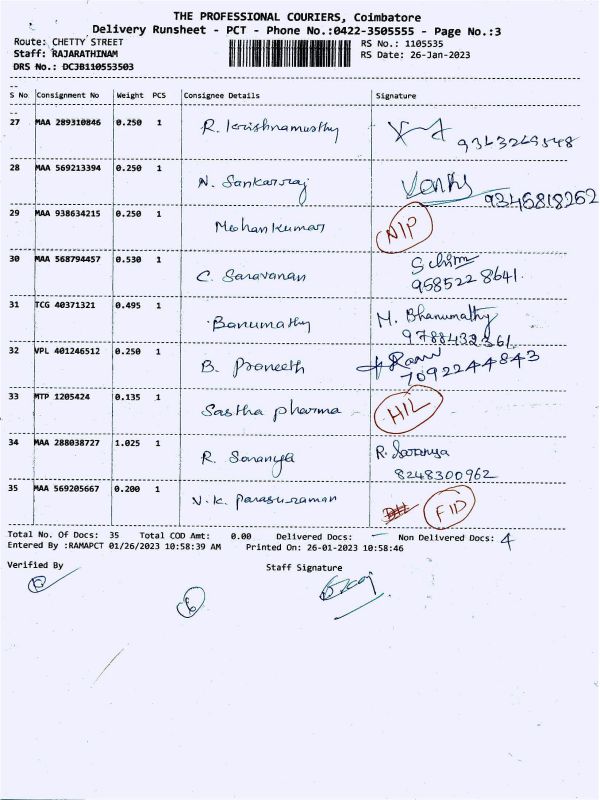 THE PROFESSIONAL COURIERS, Coimbatore
Delivery Runsheet - PCT - Phone No.:0422-3505555 - Page No.:3
Route: CHETTY STREET RS No.: 1105535
Staff: RAJARATHINAM RS Date: 26-Jan-2023
DRS No.: DCJB110553503
S No Consignment No Weight PCS Consignee Details Signature
27 MAA 289310846 0.250 1 R. Krishnamurthy
28 MAA 569213394 0.250 1 N. Sankarraj 9346818262
29 MAA 938634215 0.250 1 Mohankumar NIP
30 MAA 568794457 0.530 1 C. Saravanan
9585228641.
31 TCG 40371321 0.495 1 Banumathy M. Bhanumathy
9788432361
32 VPL 401246512 0.250 1 B. Praneeth
7092244843
33 MTP 1205424 0.135 1 Sastha pharma HIL
34 MAA 288038727 1.025 1 R. Saranya R. Saranya
8248300962
35 MAA 569205667 0.200 1 N.K. Parasuraman FID
Total No. Of Docs: 35 Total COD Amt: 0.00 Delivered Docs: - Non Delivered Docs: 4
Entered By :RAMAPCT 01/26/2023 10:58:39 AM Printed On: 26-01-2023 10:58:46
Verified By Staff Signature